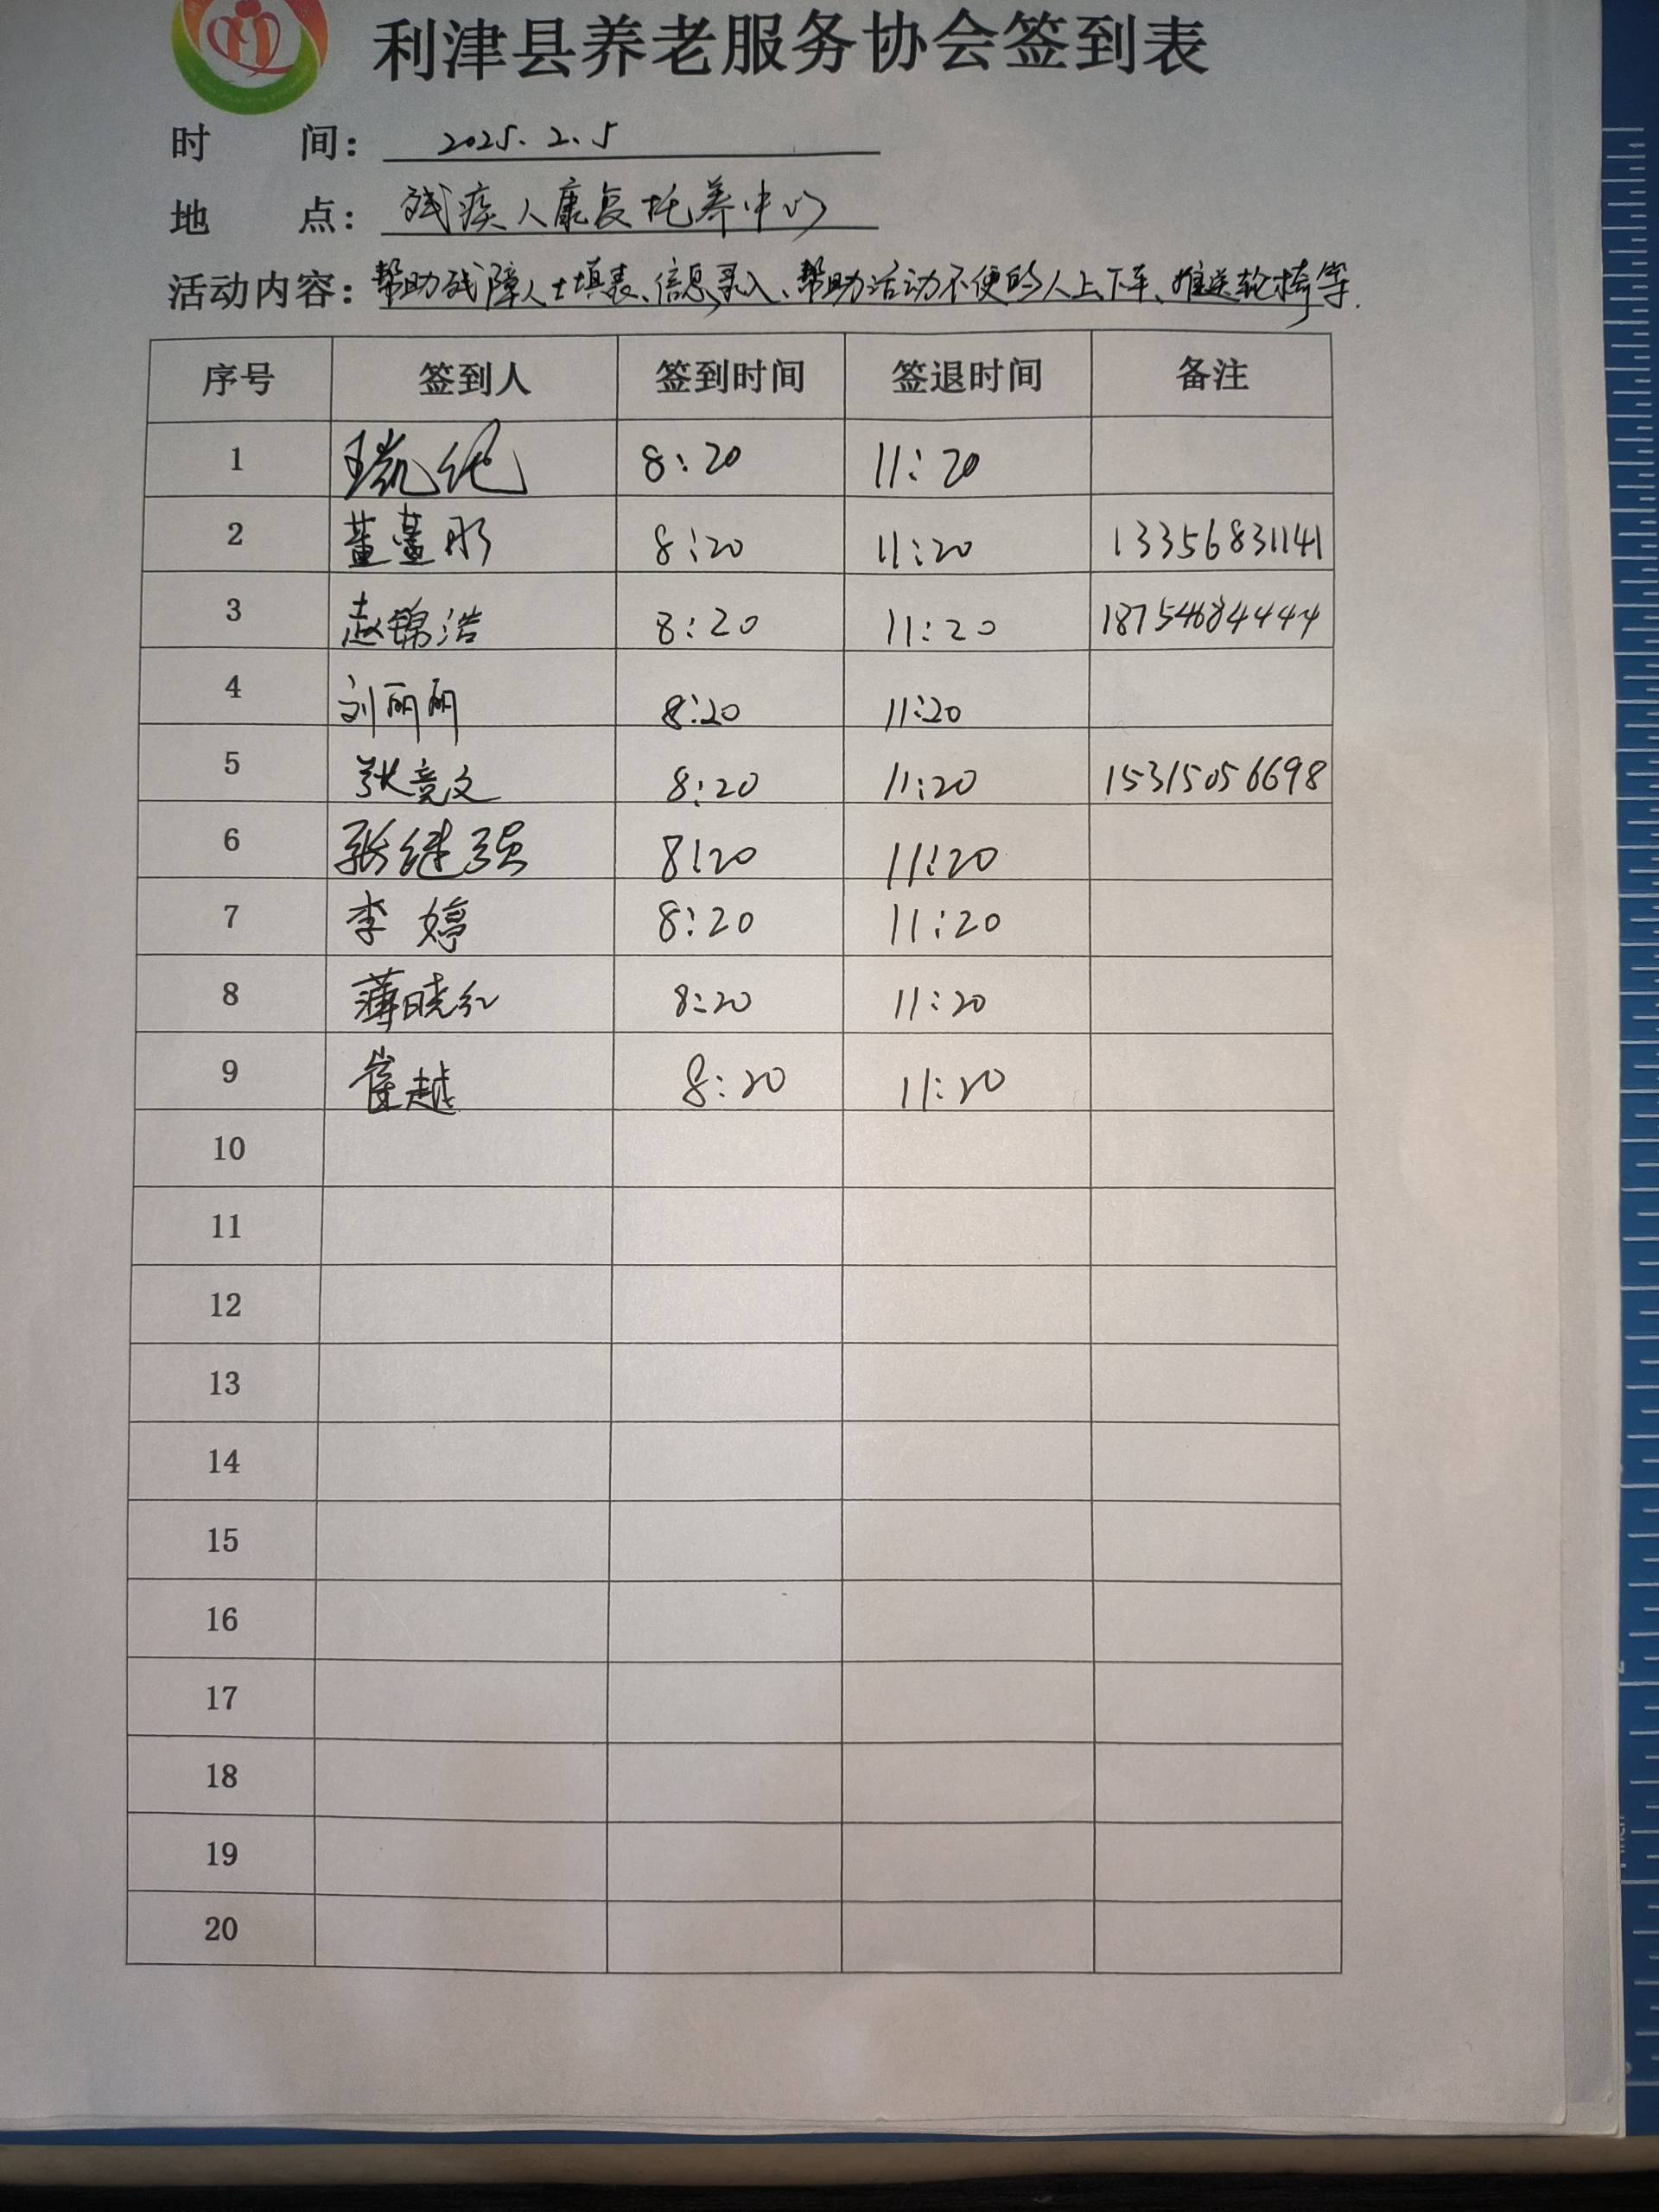 利津县养老服务协会签到表
时 间： 2025.2.5
地 点： 残疾人康复托养中心
活动内容： 帮助残障人士填表、信息录入、帮助活动不便的人上下车、推送轮椅等.
序号 签到人 签到时间 签退时间 备注
1 8:20 11:20
2 董萱彤 8:20 11:20 13356831141
3 赵锦浩 8:20 11:20 18754684444
4 刘丽丽 8:20 11:20
5 张竞文 8:20 11:20 15315056698
6 张继强 8:20 11:20
7 李婷 8:20 11:20
8 薄晓红 8:20 11:20
9 崔越 8:20 11:20
10
11
12
13
14
15
16
17
18
19
20